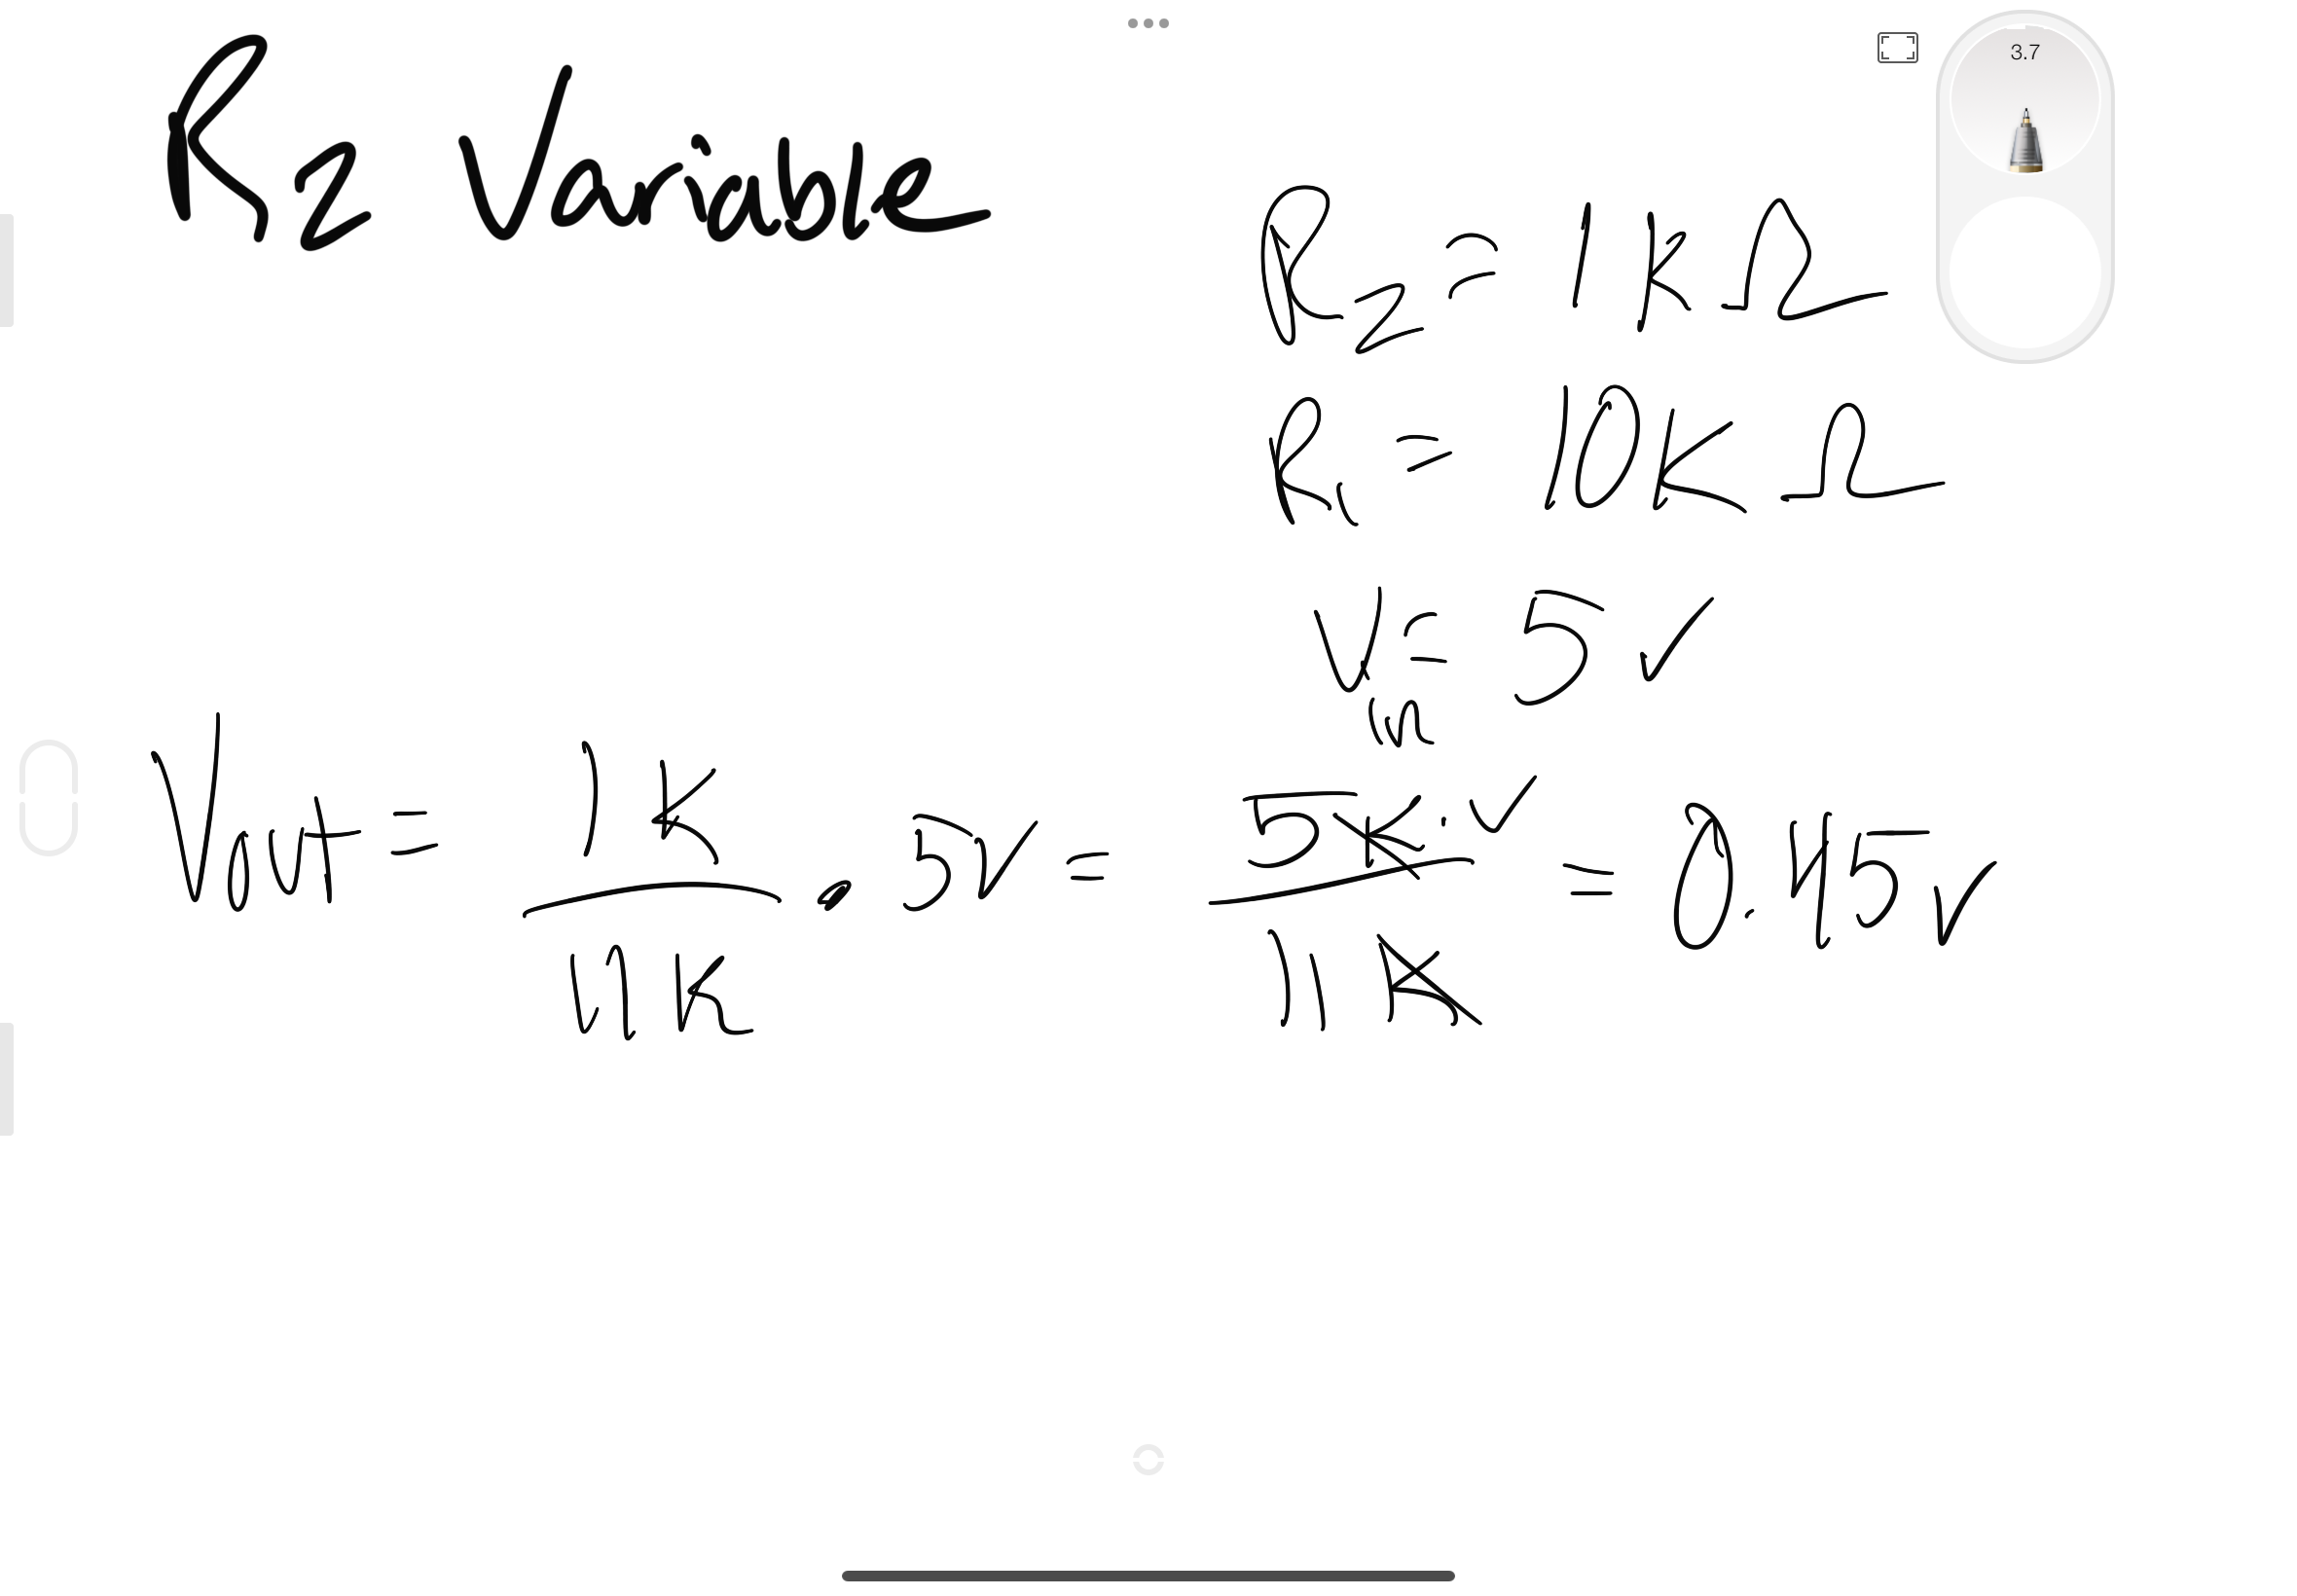 3.7
R2 Variable
R2 = 1K Ω
R1 = 10K Ω
Vin = 5V
Vout = 1K / 11K . 5V = 5K . V / 11K = 0.45V